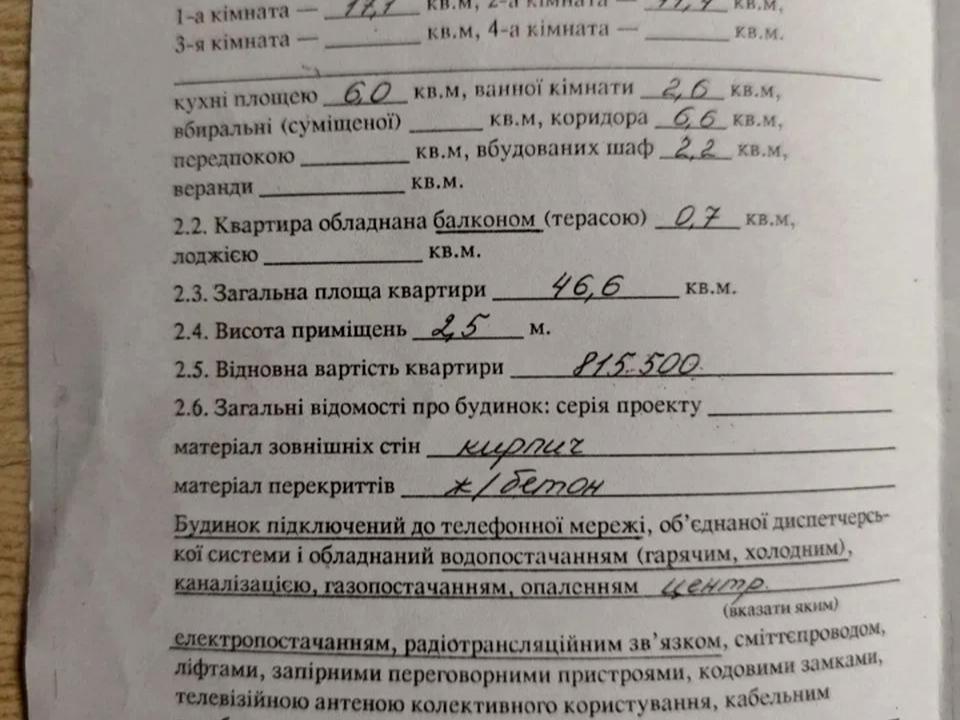 1-а кімната — 17,1 кв.м, 2-а кімната — 11,4 кв.м,
3-я кімната — ______ кв.м, 4-а кімната — ______ кв.м.
кухні площею 6,0 кв.м, ванної кімнати 2,6 кв.м,
вбиральні (суміщеної) ______ кв.м, коридора 6,6 кв.м,
передпокою ______ кв.м, вбудованих шаф 2,2 кв.м,
веранди ______ кв.м.
2.2. Квартира обладнана балконом (терасою) 0,7 кв.м,
лоджією ______ кв.м.
2.3. Загальна площа квартири 46,6 кв.м.
2.4. Висота приміщень 2,5 м.
2.5. Відновна вартість квартири 815.500
2.6. Загальні відомості про будинок: серія проекту ______
матеріал зовнішніх стін кирпич
матеріал перекриттів ж/бетон
Будинок підключений до телефонної мережі, об’єднаної диспетчерсь-
кої системи і обладнаний водопостачанням (гарячим, холодним),
каналізацією, газопостачанням, опаленням центр.
(вказати яким)
електропостачанням, радіотрансляційним зв’язком, сміттєпроводом,
ліфтами, запірними переговорними пристроями, кодовими замками,
телевізійною антеною колективного користування, кабельним